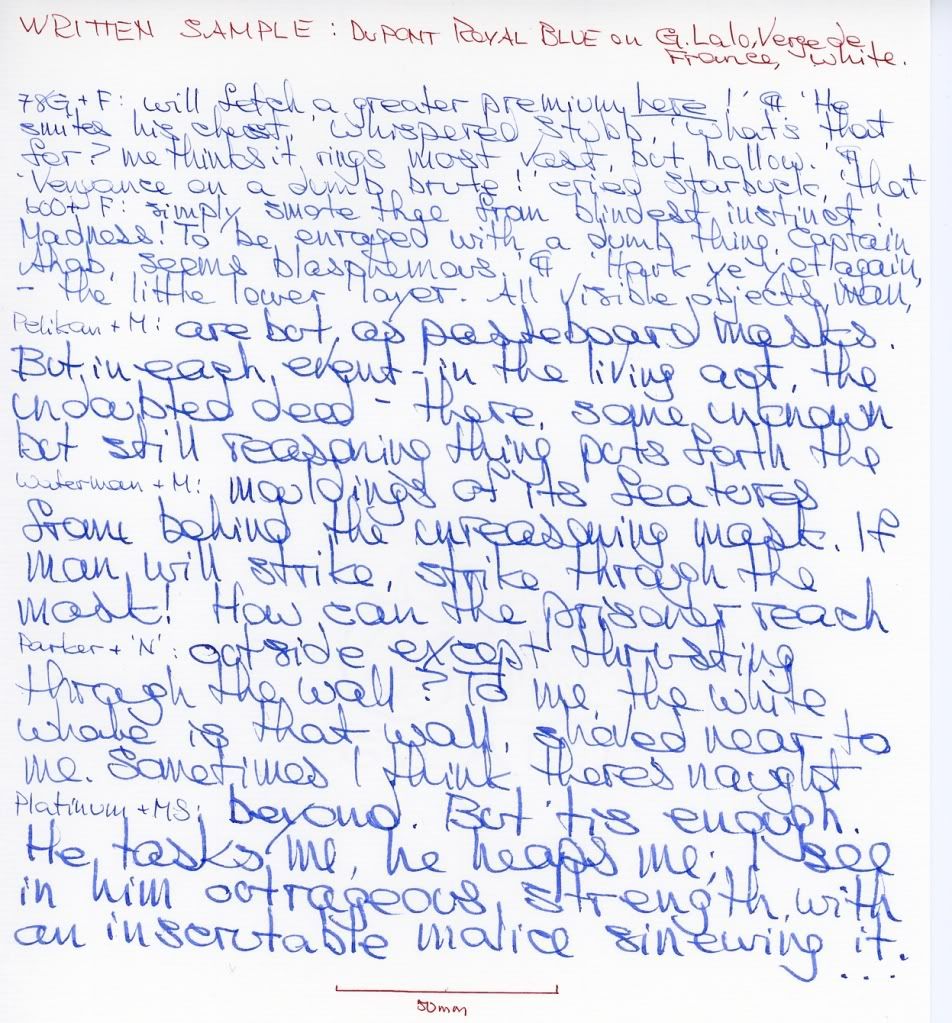 WRITTEN SAMPLE : DUPONT ROYAL BLUE on G. Lalo, Verge de
France, White.
78G + F: will fetch a greater premium here!' ¶ 'He
smites his chest,' whispered Stubb, 'what's that
for? methinks it rings most vast, but hollow.' ¶
'Vengance on a dumb brute!' cried Starbuck, 'that
600 + F: simply smote thee from blindest instinct!
Madness! To be enraged with a dumb thing, Captain
Ahab, seems blasphemous.' ¶ 'Hark ye yet again,
- the little lower layer. All visible objects, man,
Pelikan + M: are but as pasteboard masks.
But in each event - in the living act, the
undoubted deed - there, some unknown
but still reasoning thing puts forth the
Waterman + M: mouldings of its features
from behind the unreasoning mask. If
man will strike, strike through the
mask! How can the prisoner reach
Parker + 'N': outside except thrusting
through the wall? To me, the white
whale is that wall, shoved near to
me. Sometimes I think there's naught
Platinum + MS: beyond. But 'tis enough.
He tasks me, he heaps me; I see
in him outrageous strength, with
an inscrutable malice sinewing it.
...
50mm